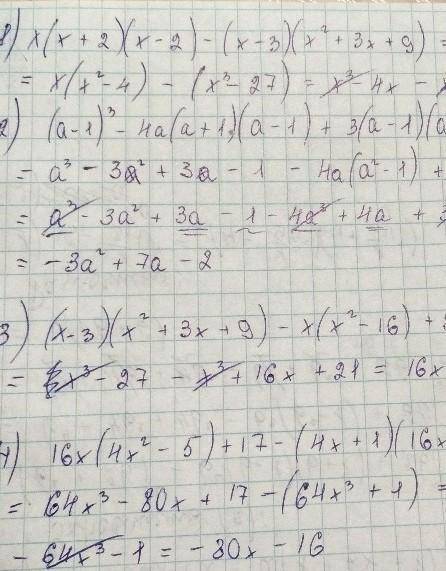 1) x(x+2)(x-2) - (x-3)(x²+3x+9) =
= x(x²-4) - (x³-27) = x³-4x -
2) (a-1)³ - 4a(a+1)(a-1) + 3(a-1)(a
= a³ - 3a² + 3a - 1 - 4a(a²-1) +
= a³ - 3a² + 3a - 1 - 4a³ + 4a + 3
= -3a² + 7a - 2
3) (x-3)(x²+3x+9) - x(x²-16) +
= x³ - 27 - x³ + 16x + 21 = 16x
4) 16x(4x²-5) + 17 - (4x+1)(16x
= 64x³ - 80x + 17 - (64x³+1) =
- 64x³ - 1 = -80x - 16